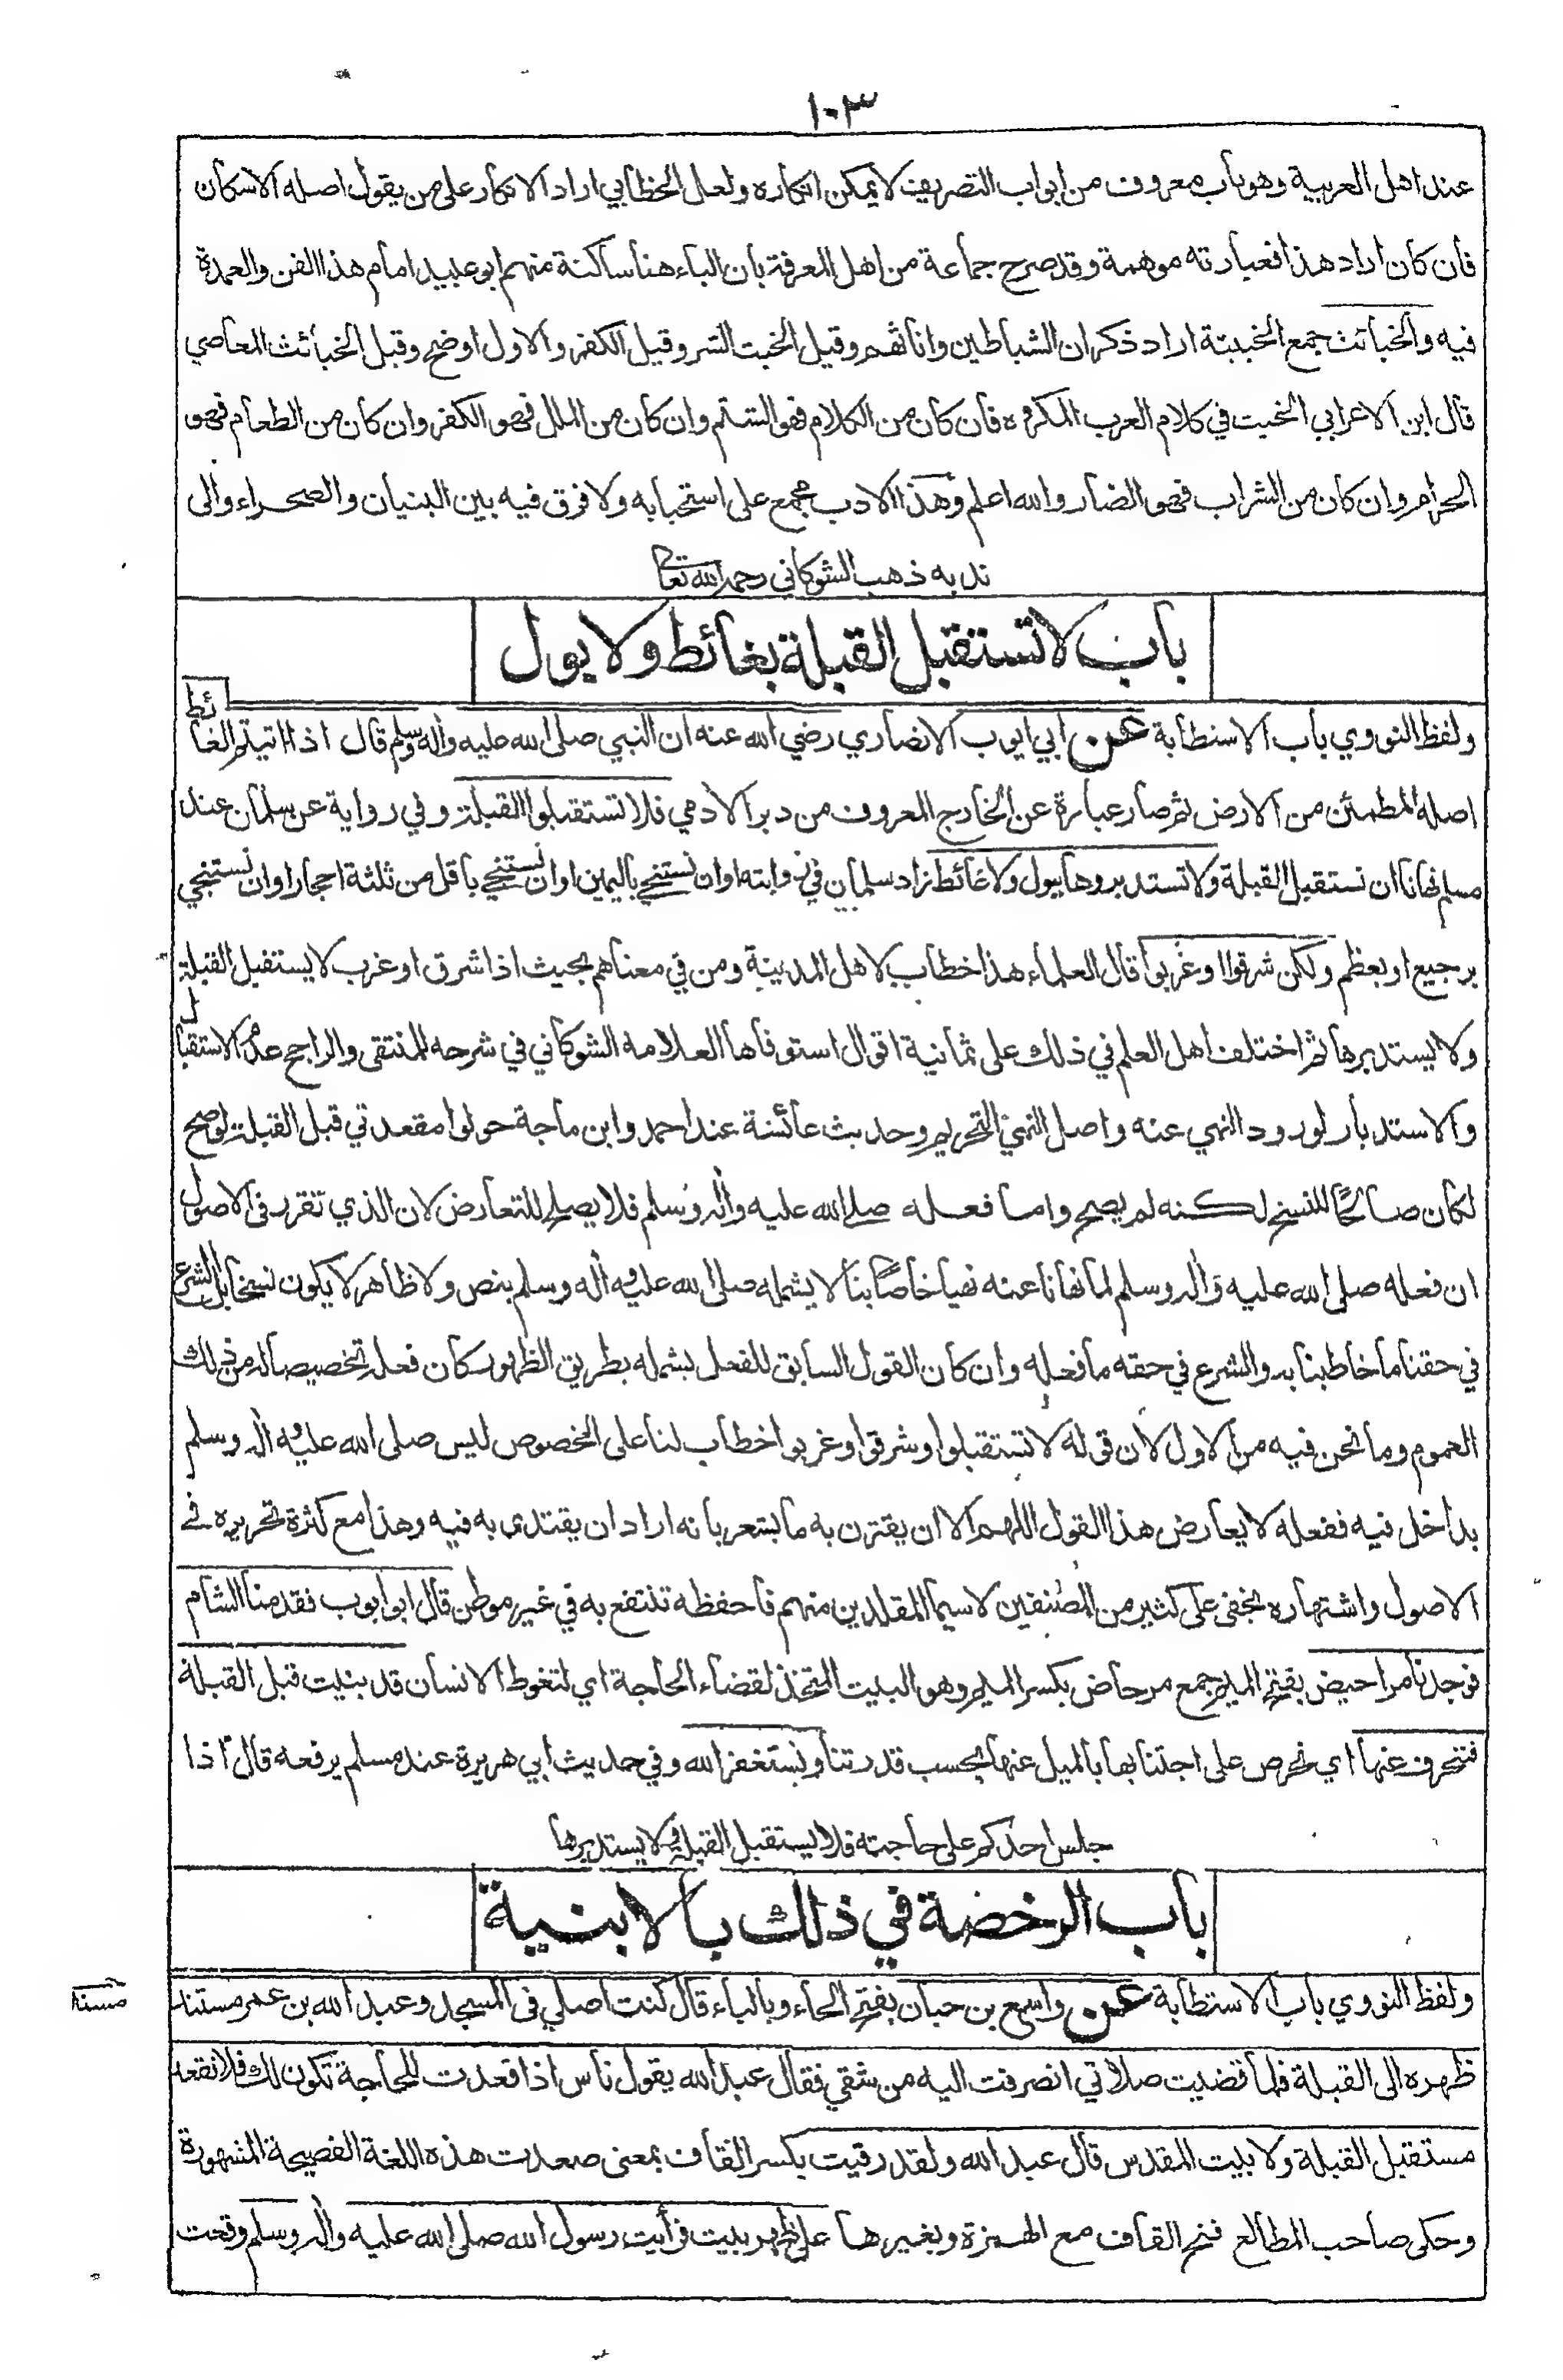 ١٠٣
عند اهل العربية وهو باب معروف من ابواب التصريف لا يمكن انكاره ولعل الخطابي اراد الانكار على من يقول اصله الاسكان
فان كان اراد هذا فعبارته موهمة وقد صرح جماعة من اهل المعرفة بان الباء هنا ساكنة منهم ابو عبيد امام هذا الفن والعمدة
فيه والخبائث جمع الخبيثة اراد ذكران الشياطين واناثهم وقيل الخبث الشر وقيل الكفر والاول اوضح وقيل الخبائث المعاصي
قال ابن الاعرابي الخبث في كلام العرب المكروه فان كان من الكلام فهو الشتم وان كان من الملل فهو الكفر وان كان من الطعام فهو
الحرام وان كان من الشراب فهو الضار والله اعلم وهذا الادب مجمع على استحبابه ولا فرق فيه بين البنيان والصحراء والى
ندبه ذهب الشوكاني رحمه الله تعالى
باب لا تستقبل القبلة بغائط ولا بول
ولفظ النووي باب الاستطابة عن ابي ايوب الانصاري رضي الله عنه ان النبي صلى الله عليه واله وسلم قال اذا اتيتم الغائط
اصله المطمئن من الارض ثم صار عبارة عن الخارج المعروف من دبر الادمي فلا تستقبلوا القبلة وفي رواية عن سلمان عند
مسلم نهانا ان نستقبل القبلة ولا تستدبروها ببول ولا غائط زاد سلمان في روايته او ان نستنجي باليمين او ان نستنجي باقل من ثلثة احجار او ان نستنجي
برجيع او بعظم ولكن شرقوا او غربوا قال العلماء هذا خطاب لاهل المدينة ومن في معناهم بحيث اذا شرق او غرب لا يستقبل القبلة
ولا يستدبرها ثم اختلف اهل العلم في ذلك على ثمانية اقوال استوفاها العلامة الشوكاني في شرحه للمنتقى والراجح عدم الاستقبال
والاستدبار لورود النهي عنه واصل النهي التحريم وحديث عائشة عند احمد وابن ماجة حولوا مقعدتي قبل القبلة لو صح
لكان صالحًا للنسخ لكنه لم يصح واما فعله صلى الله عليه واله وسلم فلا يصلح للتعارض لان الذي تقرر في الاصول
ان فعله صلى الله عليه واله وسلم لما نهانا عنه نهيا خاصًا بنا لا يشمله صلى الله عليه واله وسلم بنص ولا ظاهر لا يكون نسخا بل الشرع
في حقنا ما خاطبنا به والشرع في حقه ما فعله وان كان القول السابق للفعل يشمله بطريق الظهور كان فعله تخصيصا له من ذلك
العموم وما نحن فيه من الاول لان قوله لا تستقبلوا وشرقوا وغربوا خطاب لنا على الخصوص ليس صلى الله عليه واله وسلم
بداخل فيه ففعله لا يعارض هذا القول اللهم الا ان يقترن به ما يشعر بانه اراد ان يقتدى به فيه وهذا مع كثرة تحريره في
الاصول واشتهاره يخفى على كثير من المصنفين لا سيما المقلدين منهم فاحفظه تنتفع به في غير موطن قال ابو ايوب فقدمنا الشام
فوجدنا مراحيض بفتح الميم جمع مرحاض بكسر الميم وهو البيت المتخذ لقضاء الحاجة اي لتغوط الانسان قد بنيت قبل القبلة
فنتحرف عنها اي نحرص على اجتنابها بالميل عنها بحسب قدرتنا ونستغفر الله وفي حديث ابي هريرة عند مسلم يرفعه قال اذا
جلس احدكم على حاجته فلا يستقبل القبلة ولا يستدبرها
باب الرخصة في ذلك بالابنية
ولفظ النووي باب الاستطابة عن واسع بن حبان بفتح الحاء وبالباء قال كنت اصلي في المسجد وعبد الله بن عمر مستند
مسند
ظهره الى القبلة فلما قضيت صلاتي انصرفت اليه من شقي فقال عبد الله يقول ناس اذا قعدت للحاجة تكون لك فلا تقعد
مستقبل القبلة ولا بيت المقدس قال عبد الله ولقد رقيت بكسر القاف بمعنى صعدت هذه اللغة الفصيحة المشهورة
وحكى صاحب المطالع فتح القاف مع الهمزة وبغيرها على ظهر بيت فرأيت رسول الله صلى الله عليه واله وسلم وقعت